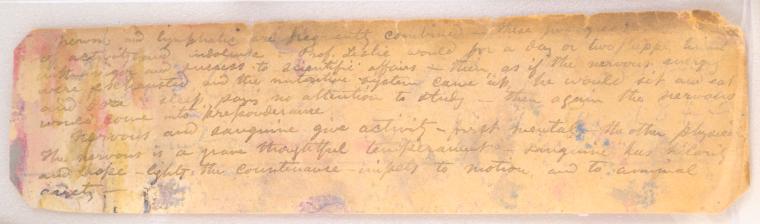 nervous and lymphatic are frequently combined — these
of activity and indolence. Prof. Leslie would for a day or two
and success to scientific affairs — then, as if the nervous energy
were exhausted and the nutritive system came up, he would sit and eat
and sleep, pays no attention to study — then again the nervous
would come into preponderance
Nervous and sanguine give activity — first mental — the other physical
The nervous is a grave thoughtful temperament — sanguine has hilarity
and hope — lights the countenance — impels to motion, and to animal